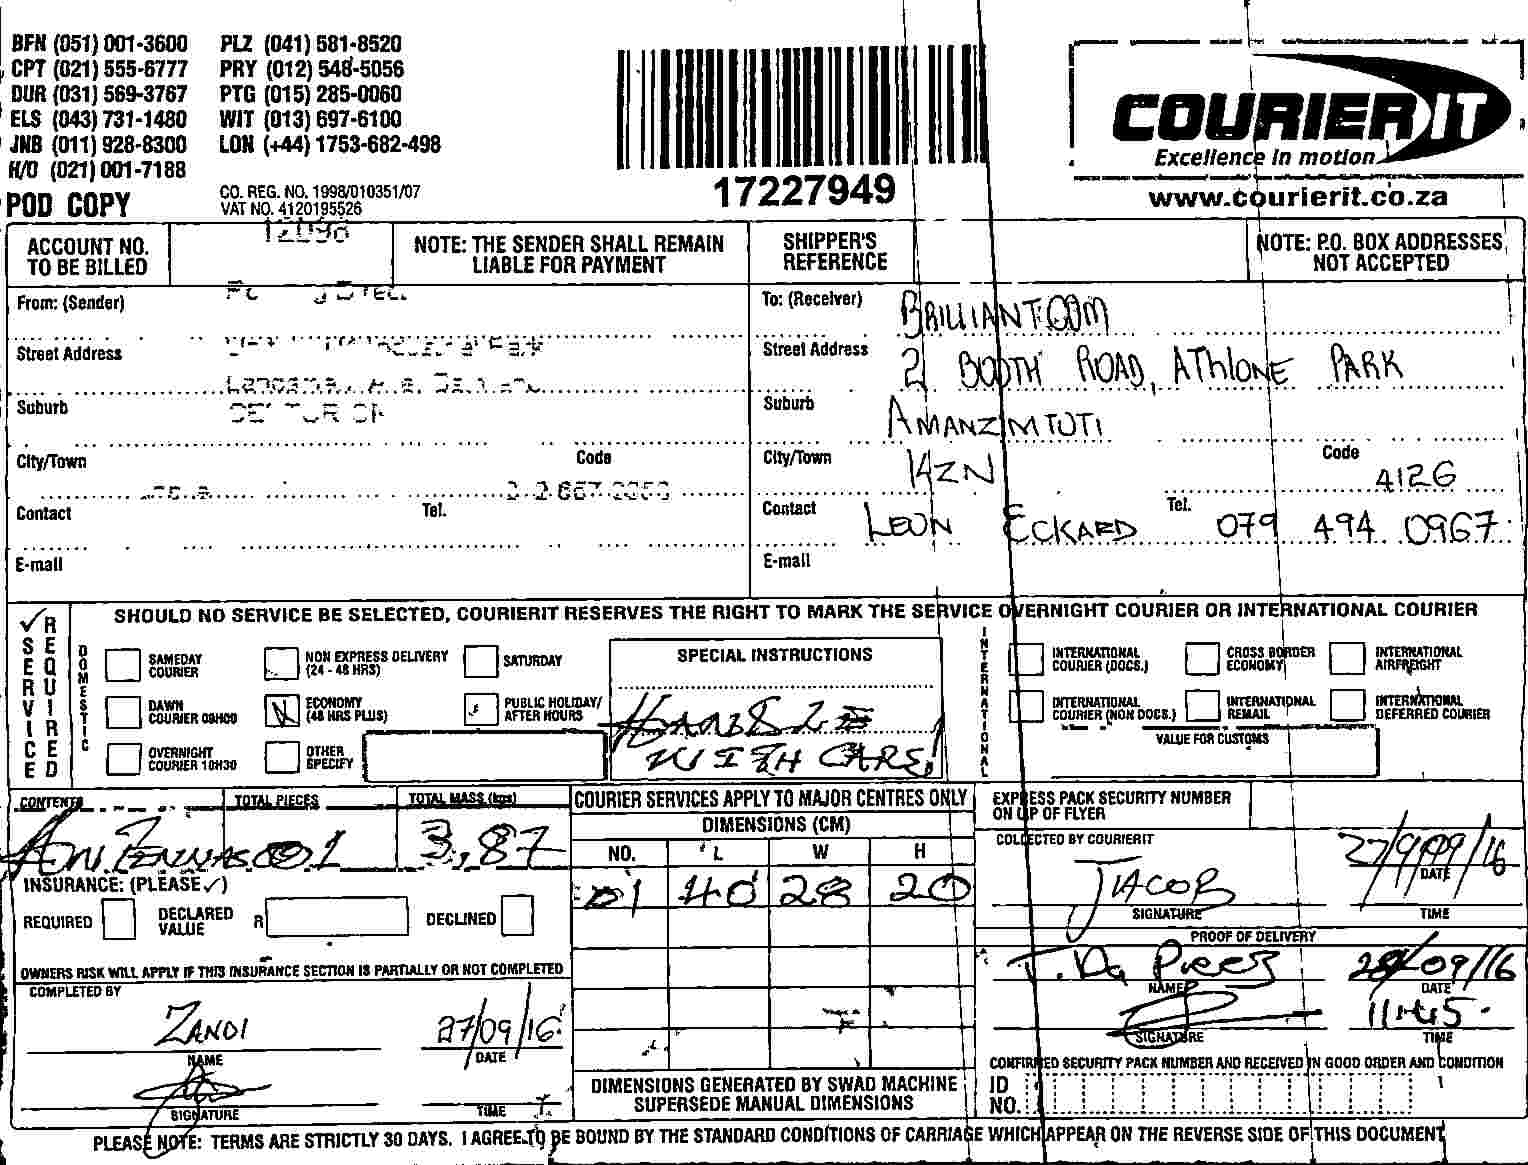 BFN (051) 001-3600 PLZ (041) 581-8520
CPT (021) 555-6777 PRY (012) 548-5056
DUR (031) 569-3767 PTG (015) 285-0060
ELS (043) 731-1480 WIT (013) 697-6100
JNB (011) 928-8300 LON (+44) 1753-682-498
H/O (021) 001-7188
POD COPY
CO. REG. NO. 1998/010351/07
VAT NO. 4120195526
17227949
COURIER IT
Excellence in motion
www.courierit.co.za
ACCOUNT NO. TO BE BILLED
12098
NOTE: THE SENDER SHALL REMAIN LIABLE FOR PAYMENT
SHIPPER'S REFERENCE
NOTE: P.O. BOX ADDRESSES NOT ACCEPTED
From: (Sender)
Street Address
Suburb
CENTURION
City/Town Code
Contact Tel.
E-mail
To: (Receiver) BRILLIANT.COM
Street Address 2 BOOTH ROAD, ATHLONE PARK
Suburb AMANZIMTOTI
City/Town KZN Code 4126
Contact LEON ECKARD Tel. 079 494 0967
E-mail
SERVICE REQUIRED
SHOULD NO SERVICE BE SELECTED, COURIERIT RESERVES THE RIGHT TO MARK THE SERVICE OVERNIGHT COURIER OR INTERNATIONAL COURIER
DOMESTIC
SAMEDAY COURIER
NON EXPRESS DELIVERY (24 - 48 HRS)
SATURDAY
DAWN COURIER 09H00
ECONOMY (48 HRS PLUS)
PUBLIC HOLIDAY/ AFTER HOURS
OVERNIGHT COURIER 10H30
OTHER SPECIFY
SPECIAL INSTRUCTIONS
HANDLE
WITH CARE!
INTERNATIONAL
INTERNATIONAL COURIER (DOCS.)
CROSS BORDER ECONOMY
INTERNATIONAL AIRFREIGHT
INTERNATIONAL COURIER (NON DOCS.)
INTERNATIONAL REMAIL
INTERNATIONAL DEFERRED COURIER
VALUE FOR CUSTOMS
CONTENTS TOTAL PIECES TOTAL MASS (kgs)
1 3,87
INSURANCE: (PLEASE ✓)
REQUIRED DECLARED VALUE R DECLINED
OWNERS RISK WILL APPLY IF THIS INSURANCE SECTION IS PARTIALLY OR NOT COMPLETED
COMPLETED BY
ZANDI 27/09/16
NAME DATE
SIGNATURE TIME
COURIER SERVICES APPLY TO MAJOR CENTRES ONLY
DIMENSIONS (CM)
NO. L W H
01 40 28 20
DIMENSIONS GENERATED BY SWAD MACHINE SUPERSEDE MANUAL DIMENSIONS
EXPRESS PACK SECURITY NUMBER ON LIP OF FLYER
COLLECTED BY COURIERIT
JACOB
DATE
SIGNATURE TIME
PROOF OF DELIVERY
28/09/16
NAME DATE
11:45
SIGNATURE TIME
CONFIRMED SECURITY PACK NUMBER AND RECEIVED IN GOOD ORDER AND CONDITION
ID NO.
PLEASE NOTE: TERMS ARE STRICTLY 30 DAYS. I AGREE TO BE BOUND BY THE STANDARD CONDITIONS OF CARRIAGE WHICH APPEAR ON THE REVERSE SIDE OF THIS DOCUMENT